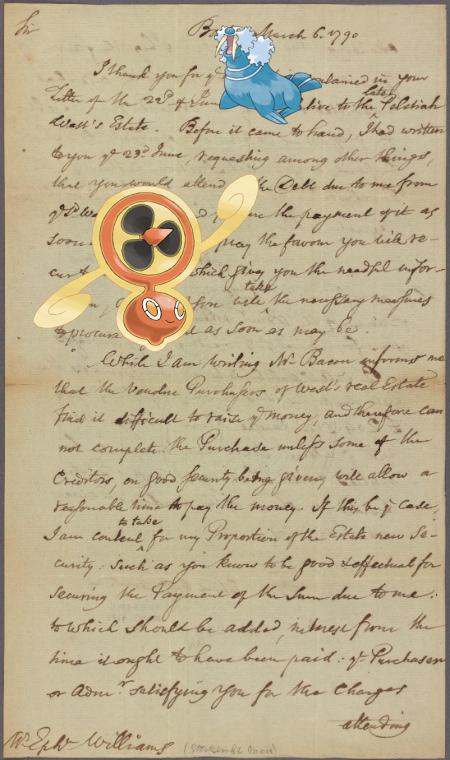 Sir
March 6. 1790
I thank you for yͤ contained in your
Letter of the 22ᵈ of June relative to the Pelatiah
West's Estate. Before it came to hand, I had later written
to you yͤ 23ᵈ June, requesting among other things,
that you would attend the Debt due to me from
the payment of it as
soon pray the favour you will re-
which giving you the needful infor-
will take the necessary measures
to procure as soon as may be.
While I am writing Mr. Bacon informs me
that the Vendue Purchasers of West's real Estate
find it difficult to raise yͤ money, and therefore can
not complete the Purchase unless some of the
Creditors, on good security being given, will allow a
reasonable time to pay the money. If this be yͤ case,
I am content to take for my Proportion of the Estate new Se-
curity: Such as you know to be good & effectual for
securing the Payment of the Sum due to me:
to which should be added, interest from the
time it ought to have been paid: yͤ Purchaser
or Admʳ satisfying you for the Charges
attending
Mr. Ephᵐ Williams